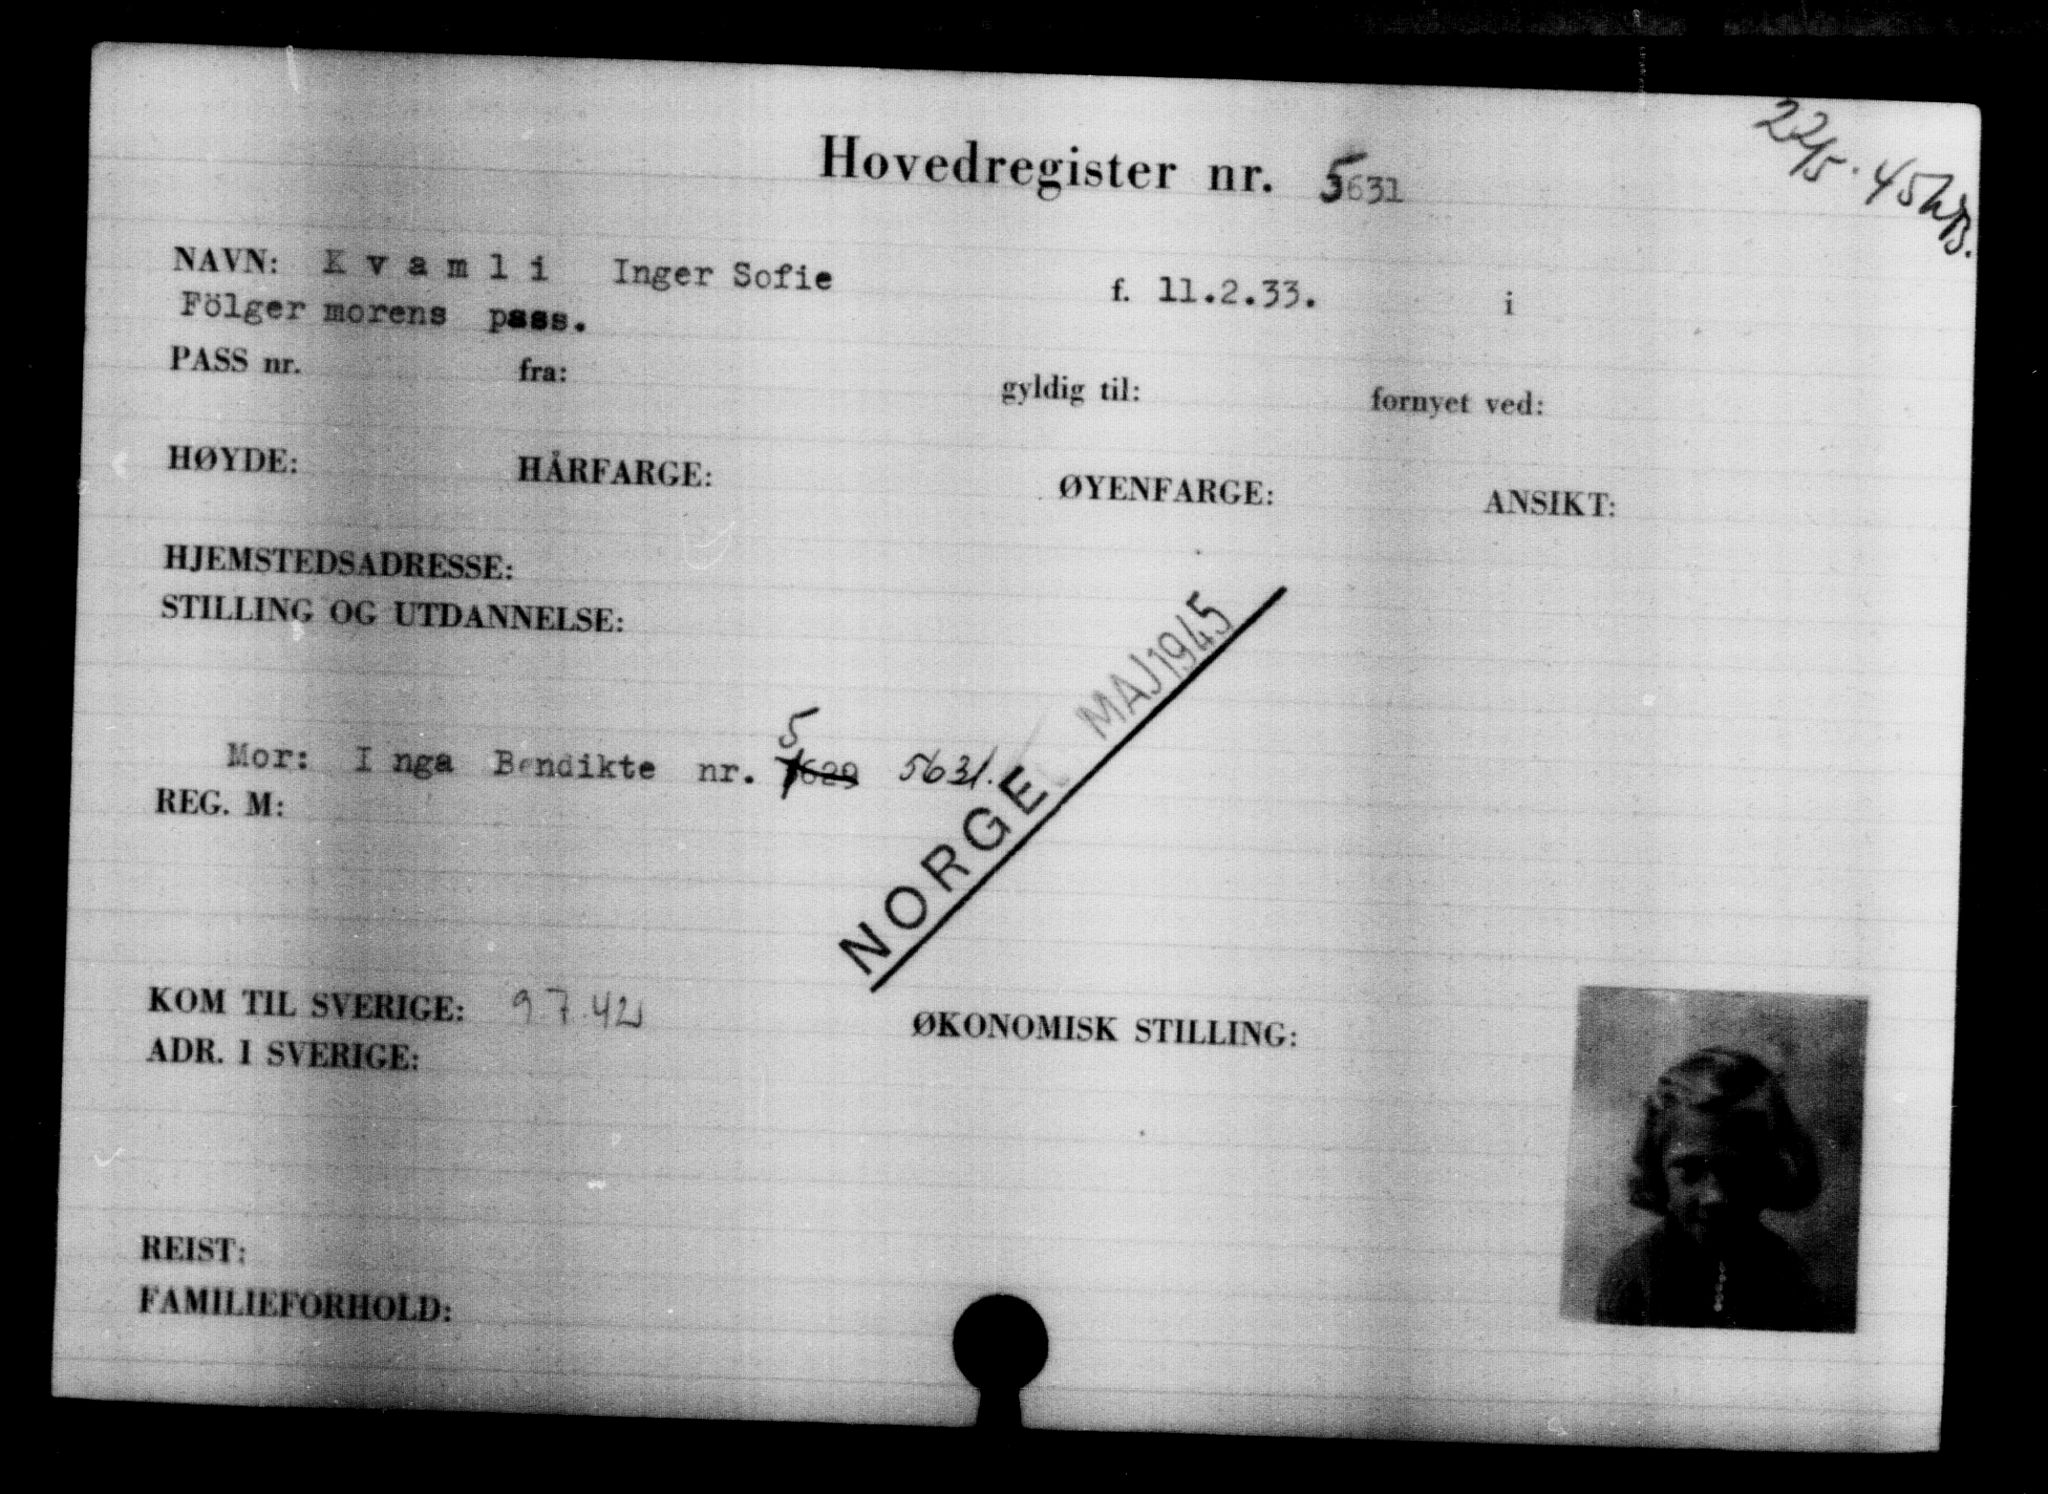 22/5.45
Hovedregister nr. 5631
NAVN: Kvamli Inger Sofie f. 11.2.33. i
Fölger morens pass.
PASS nr. fra: gyldig til: fornyet ved:
HØYDE: HÅRFARGE: ØYENFARGE: ANSIKT:
HJEMSTEDSADRESSE:
STILLING OG UTDANNELSE:
5
Mor: Inga Bendikte nr. 5631.
REG. M:
NORGE MAJ 1945
KOM TIL SVERIGE: 9.7.42 ØKONOMISK STILLING:
ADR. I SVERIGE:
REIST:
FAMILIEFORHOLD: